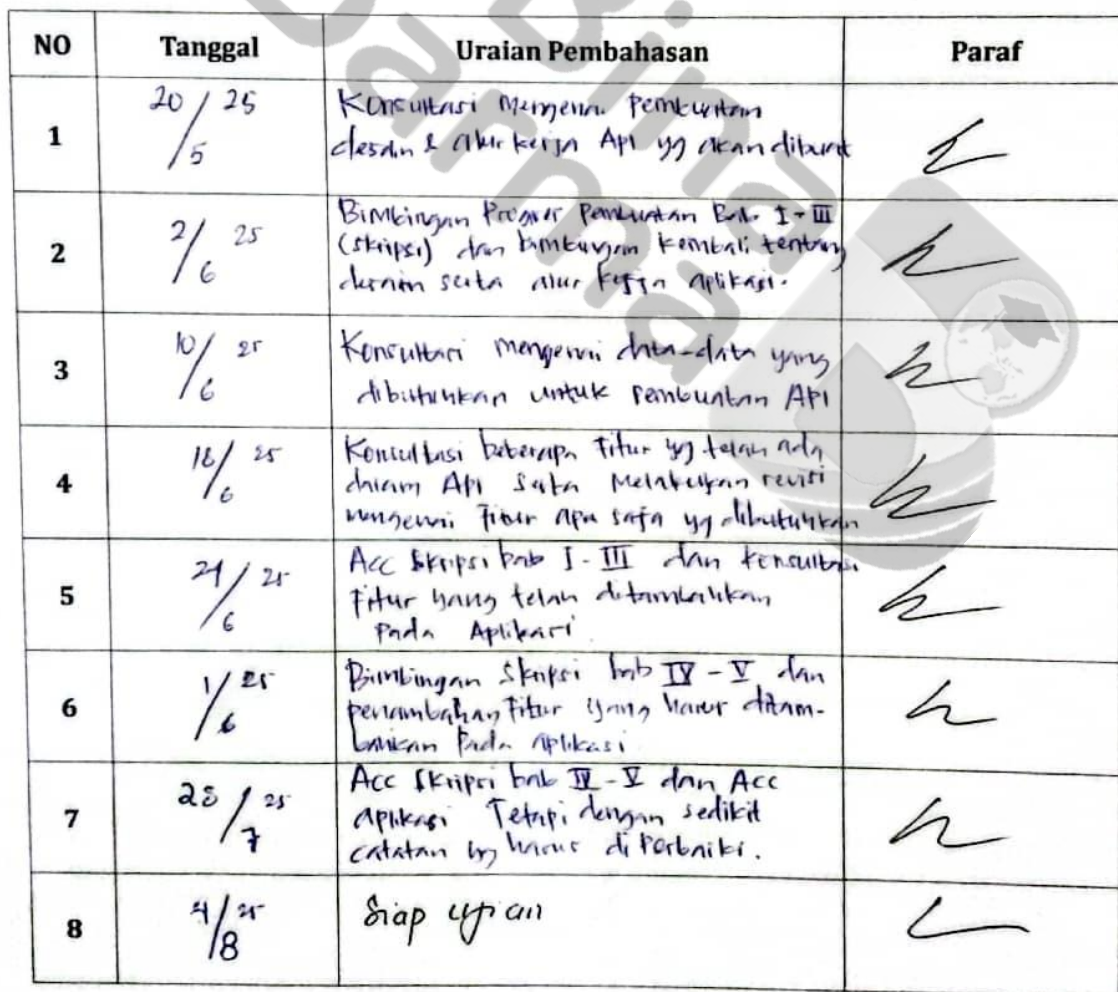 Bina
Darma
NO Tanggal Uraian Pembahasan Paraf
1 20/5 25 Konsultasi Mengenai Pembuatan
desain & alur kerja Api yg akan dibuat
2 2/6 25 Bimbingan Progres Pembuatan Bab I-III
(skripsi) dan bimbingan kembali tentang
desain serta alur kerja aplikasi.
3 10/6 25 Konsultasi mengenai data-data yang
dibutuhkan untuk pembuatan API
4 /6 25 Konsultasi beberapa Fitur yg telah ada
dalam API Serta Melakukan revisi
mengenai Fitur apa saja yg dibutuhkan
5 /6 25 Acc Skripsi bab I-III dan konsultasi
Fitur yang telah ditambahkan
Pada Aplikasi
6 1/6 25 Bimbingan Skripsi bab IV-V dan
penambahan Fitur yang harus ditam-
bahkan Pada Aplikasi
7 /7 25 Acc Skripsi bab IV-V dan Acc
aplikasi Tetapi dengan sedikit
catatan yg harus di Perbaiki.
8 4/8 25 Siap ujian